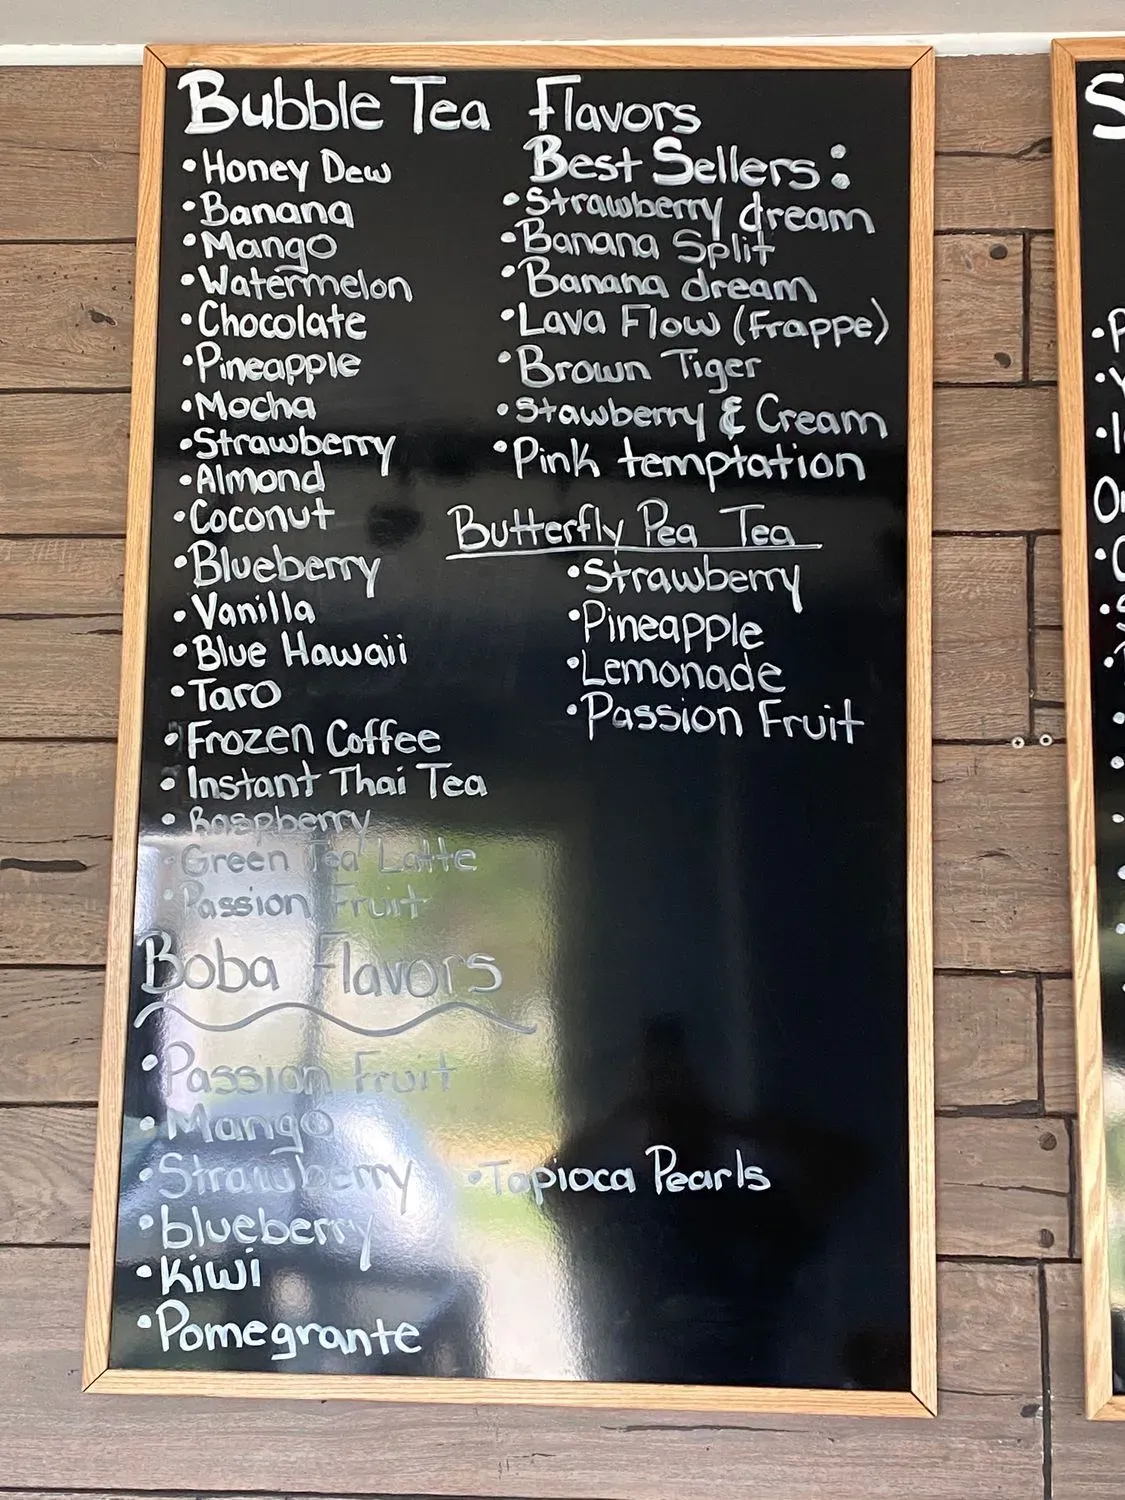 Bubble Tea Flavors
• Honey Dew
• Banana
• Mango
• Watermelon
• Chocolate
• Pineapple
• Mocha
• Strawberry
• Almond
• Coconut
• Blueberry
• Vanilla
• Blue Hawaii
• Taro
• Frozen Coffee
• Instant Thai Tea
• Raspberry
• Green Tea Latte
• Passion Fruit
Best Sellers:
• Strawberry dream
• Banana Split
• Banana dream
• Lava Flow (Frappe)
• Brown Tiger
• Stawberry & Cream
• Pink temptation
Butterfly Pea Tea
• Strawberry
• Pineapple
• Lemonade
• Passion Fruit
Boba Flavors
• Passion Fruit
• Mango
• Strawberry
• blueberry
• Kiwi
• Pomegrante
• Tapioca Pearls